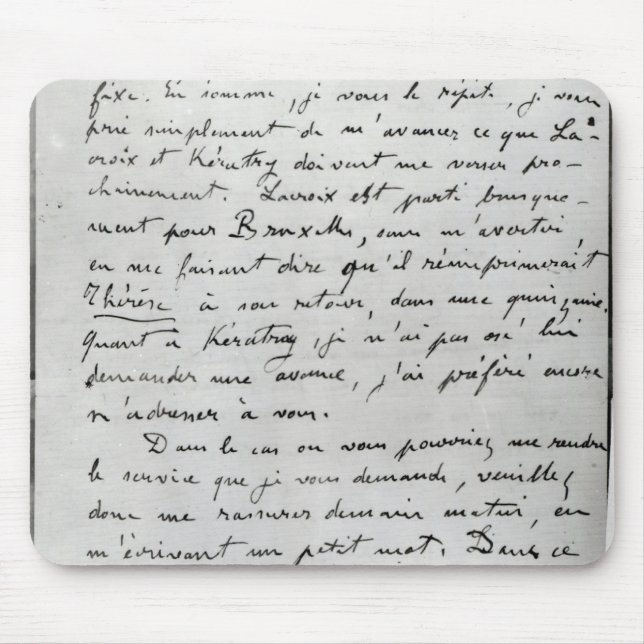 fixe. En somme, je vous le répète, je vous
prie simplement de m'avancer ce que La-
croix et Kératry doivent me verser pro-
chainement. Lacroix est parti brusque-
ment pour Bruxelles, sans m'avertir,
en me faisant dire qu'il réimprimerait
Thérèse à son retour, dans une quinzaine.
Quant à Kératry, je n'ai pas osé lui
demander une avance, j'ai préféré encore
m'adresser à vous.
Dans le cas où vous pourriez me rendre
le service que je vous demande, veuillez
donc me rassurer demain matin, en
m'écrivant un petit mot. Dans ce